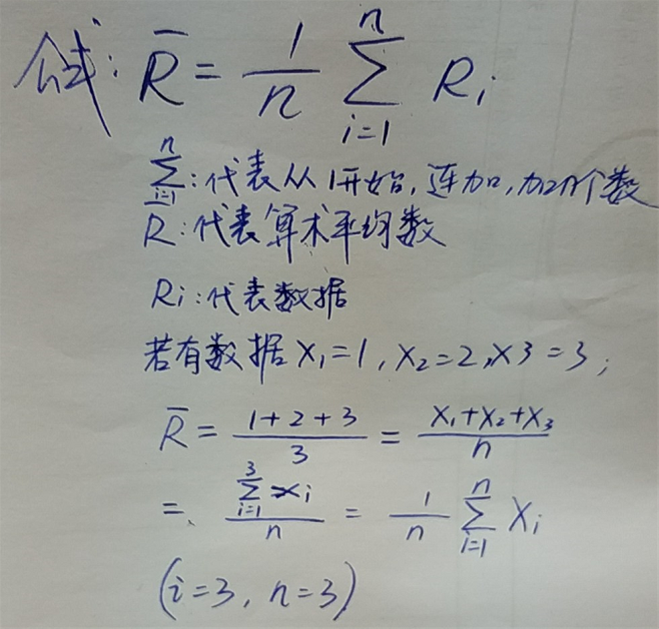 公式: R̄ = 1/n ∑_{i=1}^{n} R_i
∑_{i=1}^{n}:代表从1开始,连加,加n个数
R:代表算术平均数
Ri:代表数据
若有数据X₁=1,X₂=2,X3=3;
R̄ = (1+2+3)/3 = (X₁+X₂+X₃)/n
= (∑_{i=1}^{3} x_i)/n = 1/n ∑_{i=1}^{n} X_i
(i=3, n=3)